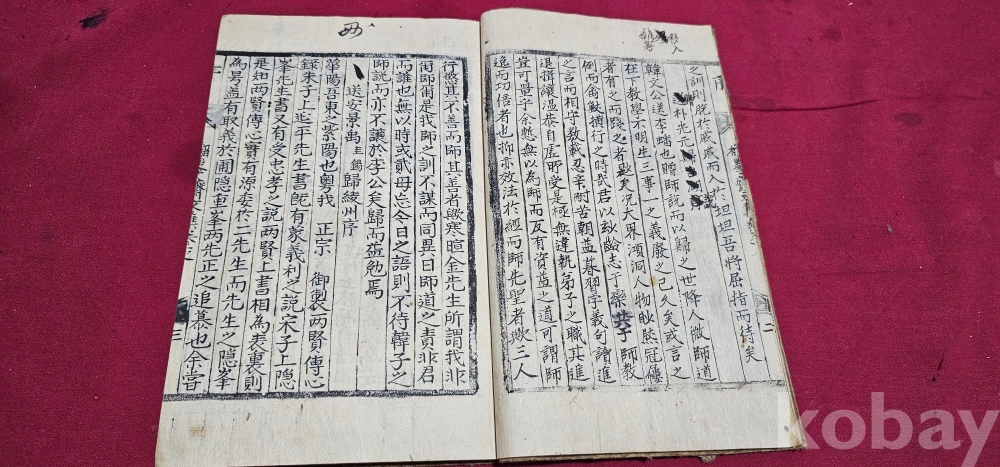 之訓則脫於戚戚而入於坦坦吾將屈指而待矣
朴先
韓文公送李蟠也贈師說而以歸之世降人微師道
在下教學不明生三事一之義廢之已久矣或言之
者有之而踐之者尠矣況大界澒洞人物眇然冠儒
例而禽獸行之時君以妙齡志于樂 師教
之言而相守教戒忍辛耐苦朝益暮習字義句讀進
退揖讓溫恭自虛所受是極無違執弟子之職其進
豈可量乎余愁無以為師而及有資益之道可謂師
逸而功倍者也抑亦效法於經而師先聖者歟三人
行懲其不善而師其善者歟寒暄金先生所謂我非
甭師甭是我師之訓不謀而同異日師道之責非君
而誰也無以時或貳毋忘今日之語則不待韓子之
師說而亦不讓於李公矣歸而益勉焉
送安景禹圭鏞歸綾州序
華陽吾東之紫陽也粵我 正宗 御製兩賢傳心
錄朱子上延平先生書旣有蒙義利之說宋子上隱
峯先生書又有受忠孝之說兩賢上書相為表裏則
是知兩賢傳心實有源委於二先生而先生之隱峯
為号盖有取義於圃隱重峯兩先正之追慕也余嘗
二
三
kobay